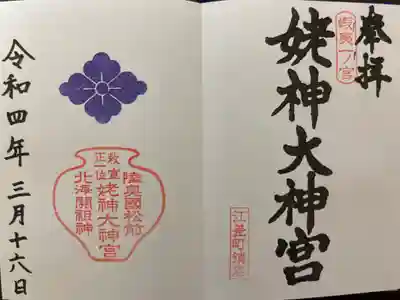 奉拝
蝦夷一ノ宮
姥神大神宮
江差町鎮座
陸奥國松前
敕宣
正一位
姥神大神宮
北海開祖神
令和四年三月十六日